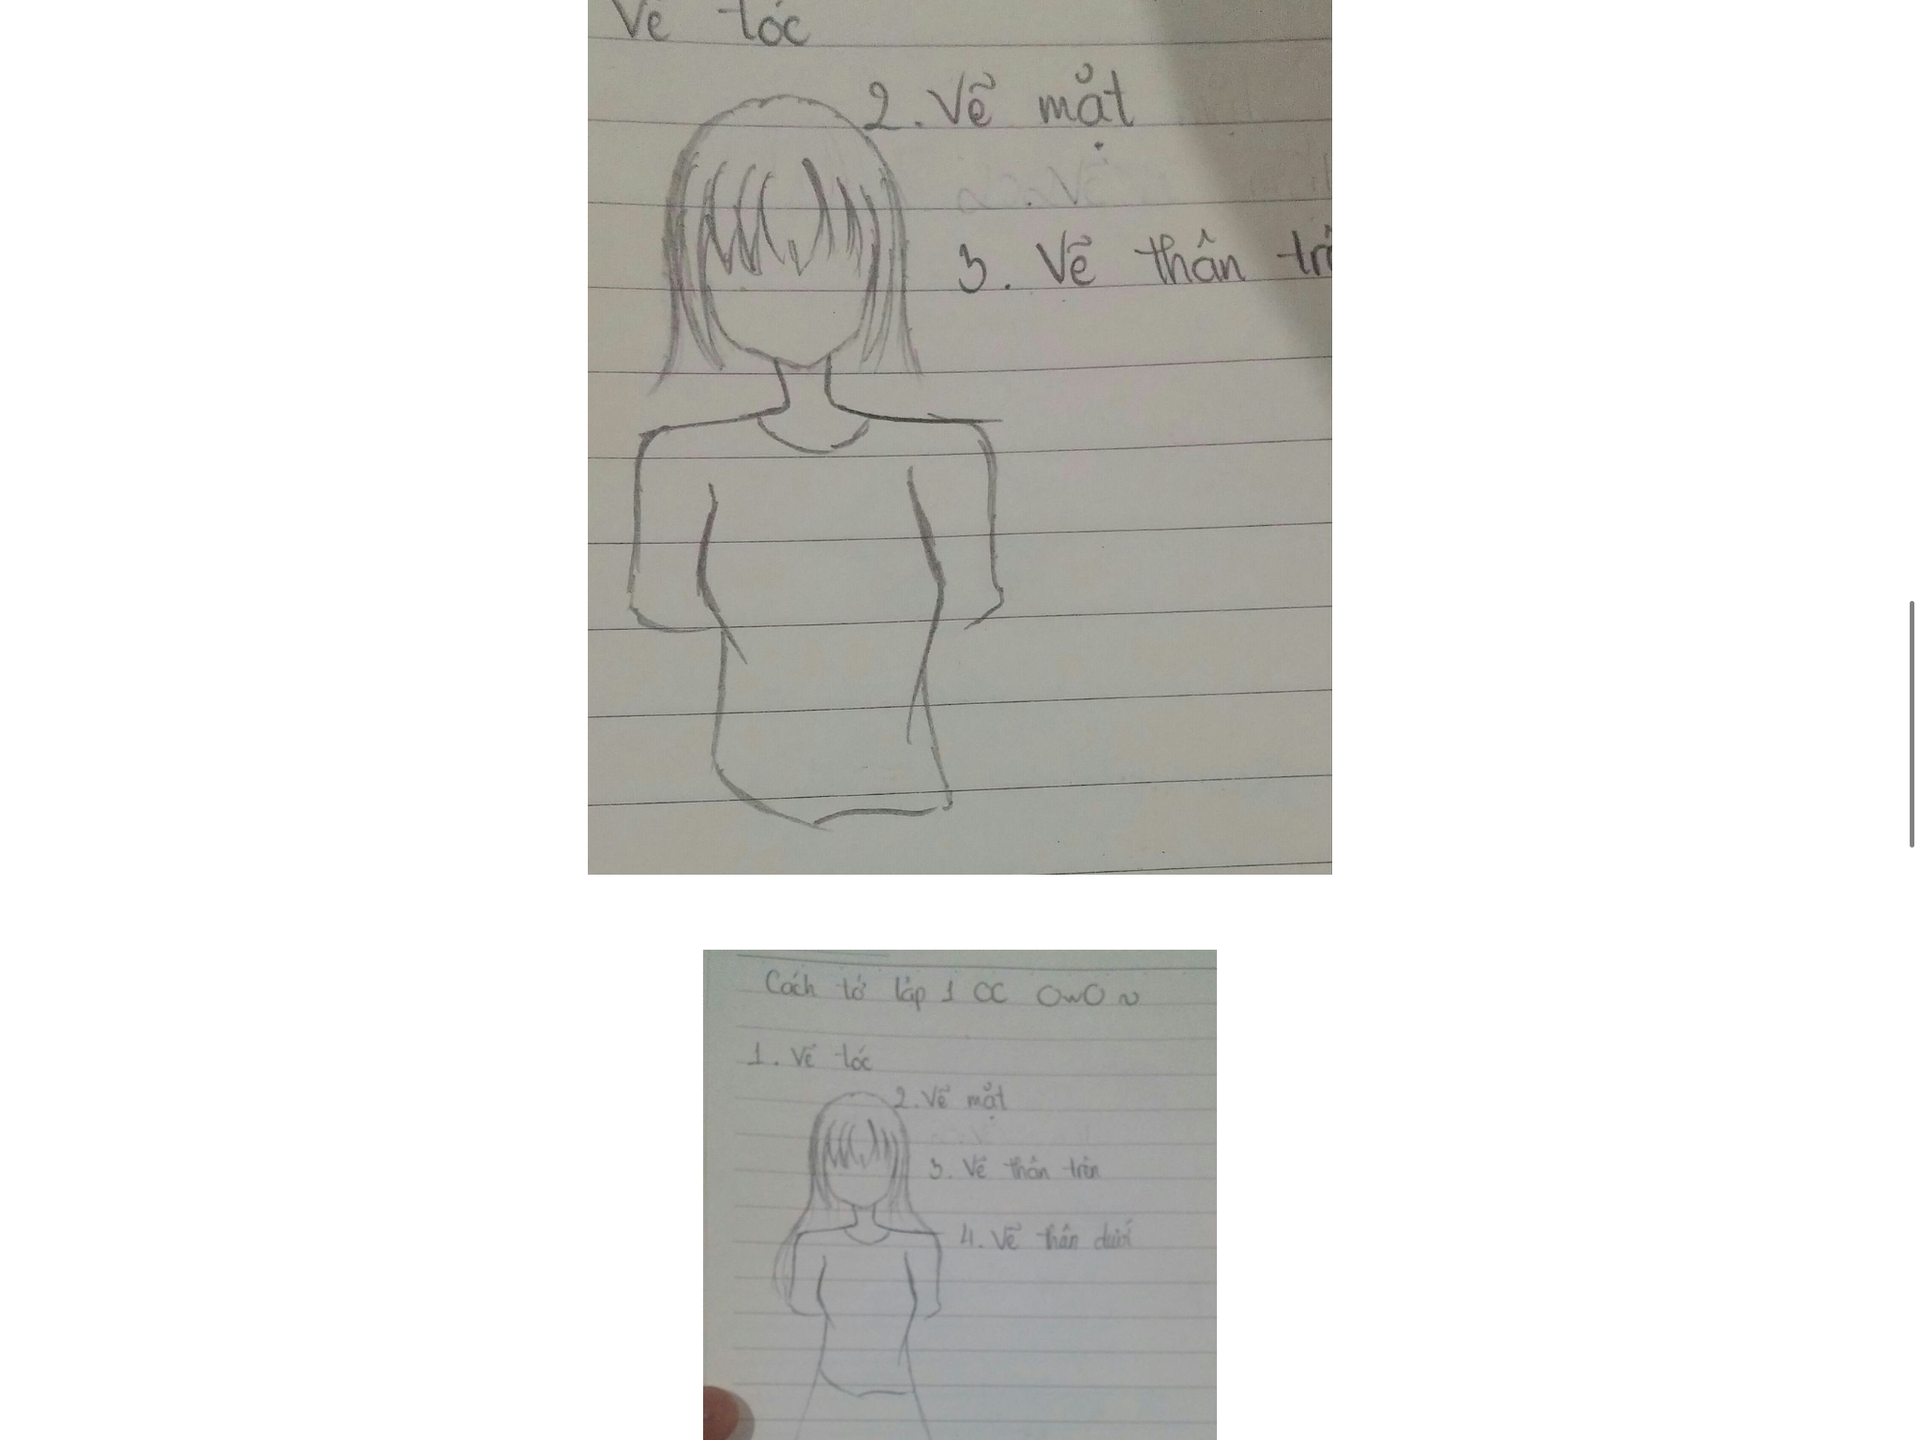 Vẽ tóc
2. Vẽ mặt
3. Vẽ thân
Cách tớ lập 1 OC OwO ~
1. Vẽ tóc
2. Vẽ mặt
3. Vẽ thân trên
4. Vẽ thân dưới